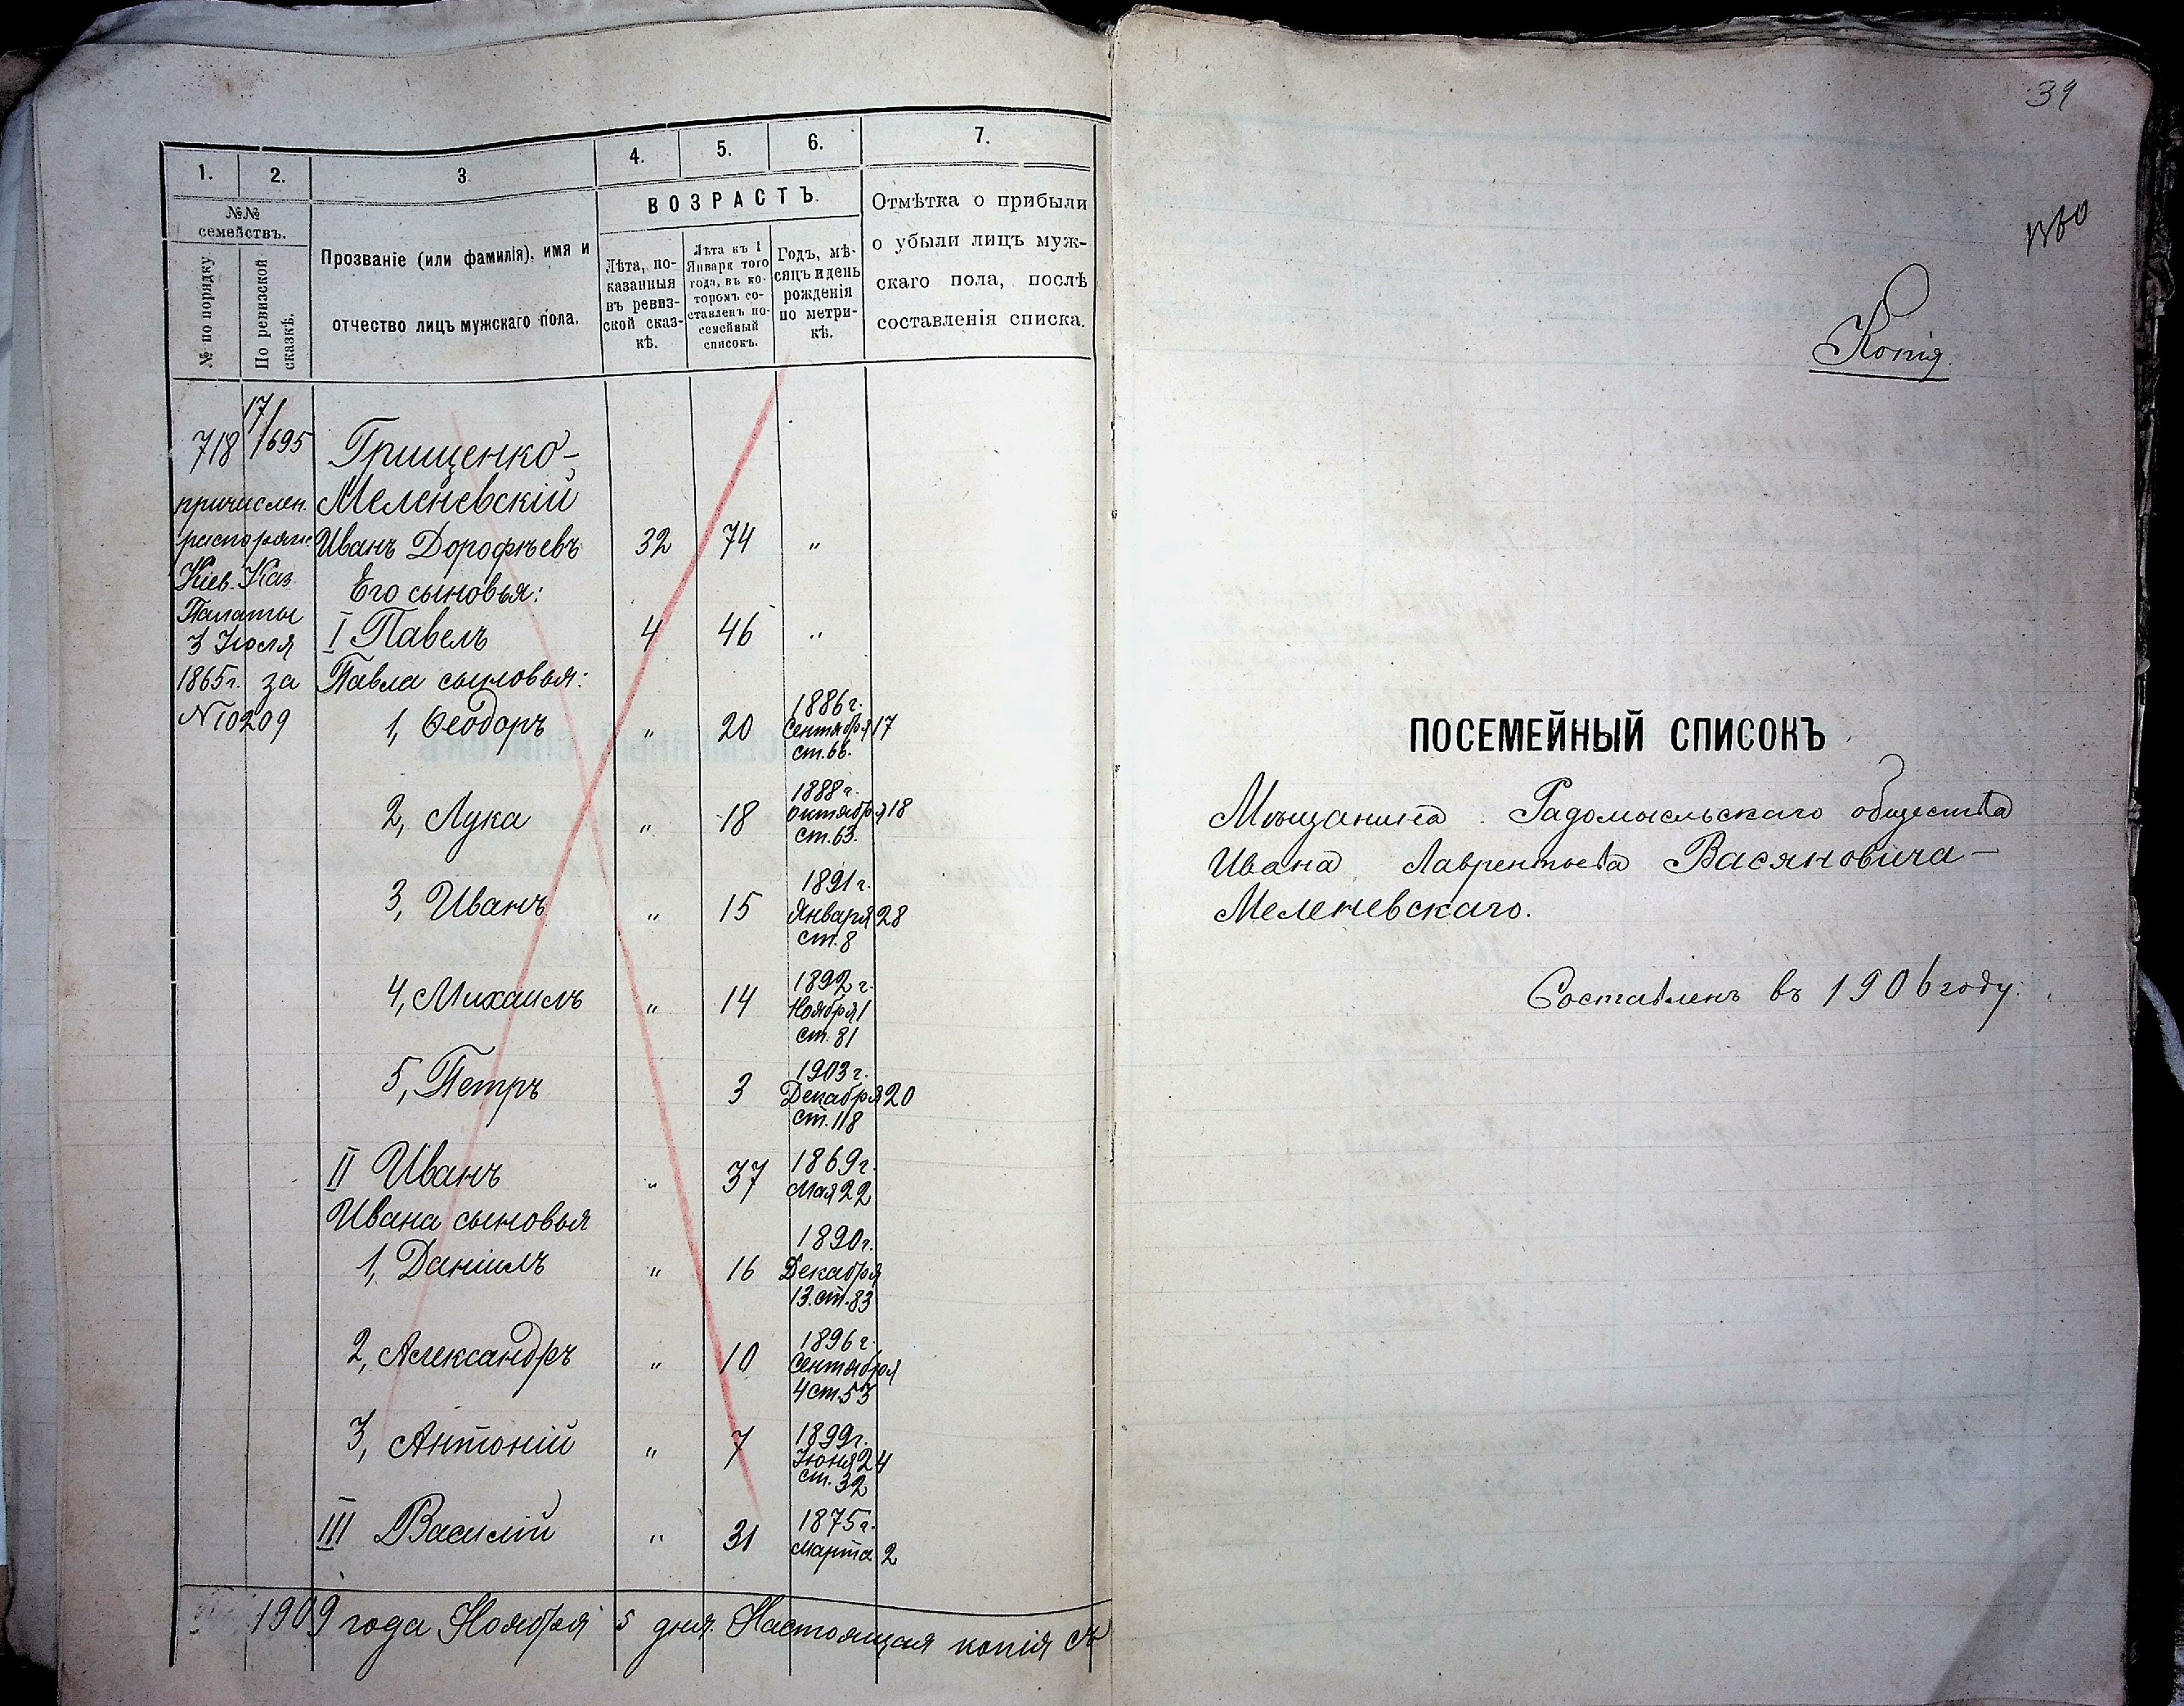 1.
2.
3.
4.
5.
6.
7.
№№ семействъ.
№ по порядку
По ревизской сказкѣ.
Прозваніе (или фамилія), имя и
отчество лицъ мужскаго пола.
ВОЗРАСТЪ.
Лѣта, по-
казанныя
въ ревиз-
ской сказ-
кѣ.
Лѣта къ 1
Января того
года, въ ко-
торомъ со-
ставленъ по-
семейный
списокъ.
Годъ, мѣ-
сяцъ и день
рожденія
по метри-
кѣ.
Отмѣтка о прибыли
о убыли лицъ муж-
скаго пола, послѣ
составленія списка.
718 17/695 Грищенко-
причислен. Меленевскій
распоряж. Иванъ Дорофѣевъ 32 74 "
Кіев. Каз. Его сыновья:
Палаты
3 Іюля I Павелъ 4 46 "
1865 г. за Павла сыновья:
N 10209 1, Ѳеодоръ " 20 1886 г.
Сентября 17
ст. 66.
2, Лука " 18 1888 г.
октября 18
ст. 63.
3, Иванъ " 15 1891 г.
Января 28
ст. 8
4, Михаилъ " 14 1892 г.
Ноября 1
ст. 81
5, Петръ 3 1903 г.
Декабря 20
ст. 118
II Иванъ " 37 1869 г.
Мая 22
Ивана сыновья
1, Даніилъ " 16 1890 г.
Декабря
13. ст. 83
2, Александръ " 10 1896 г.
Сентября
4 ст. 53
3, Антоній " 7 1899 г.
Іюня 24
ст. 32
III Василій " 31 1875 г.
Марта 2
1909 года Ноября 5 дня. Настоящая копія съ
39
Копія.
ПОСЕМЕЙНЫЙ СПИСОКЪ
Мѣщанина Радомысльскаго общества
Ивана Лаврентьева Васяновича-
Меленевскаго.
Составленъ въ 1906 году.